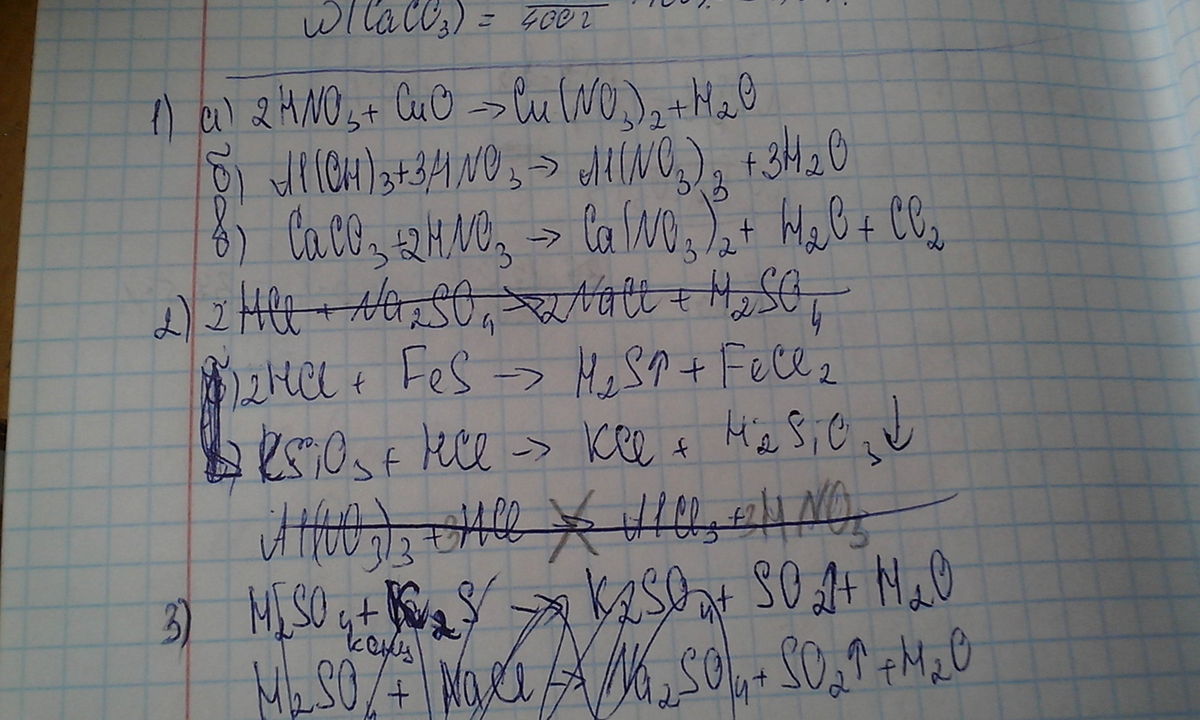 W(CaCO₃) = 400г
1) а) 2HNO₃ + CuO → Cu(NO₃)₂ + H₂O
б) Al(OH)₃ + 3HNO₃ → Al(NO₃)₃ + 3H₂O
в) CaCO₃ + 2HNO₃ → Ca(NO₃)₂ + H₂O + CO₂
2) 2HCl + Na₂SO₄ → 2NaCl + H₂SO₄
б) 2HCl + FeS → H₂S↑ + FeCl₂
KSiO₃ + HCl → KCl + H₂SiO₃↓
Al(NO₃)₃ + 3HCl → AlCl₃ + 3HNO₃
3) H₂SO₄ + K₂S → K₂SO₄ + SO₂↑ + H₂O
конц
H₂SO₄ + NaCl → Na₂SO₄ + SO₂↑ + H₂O